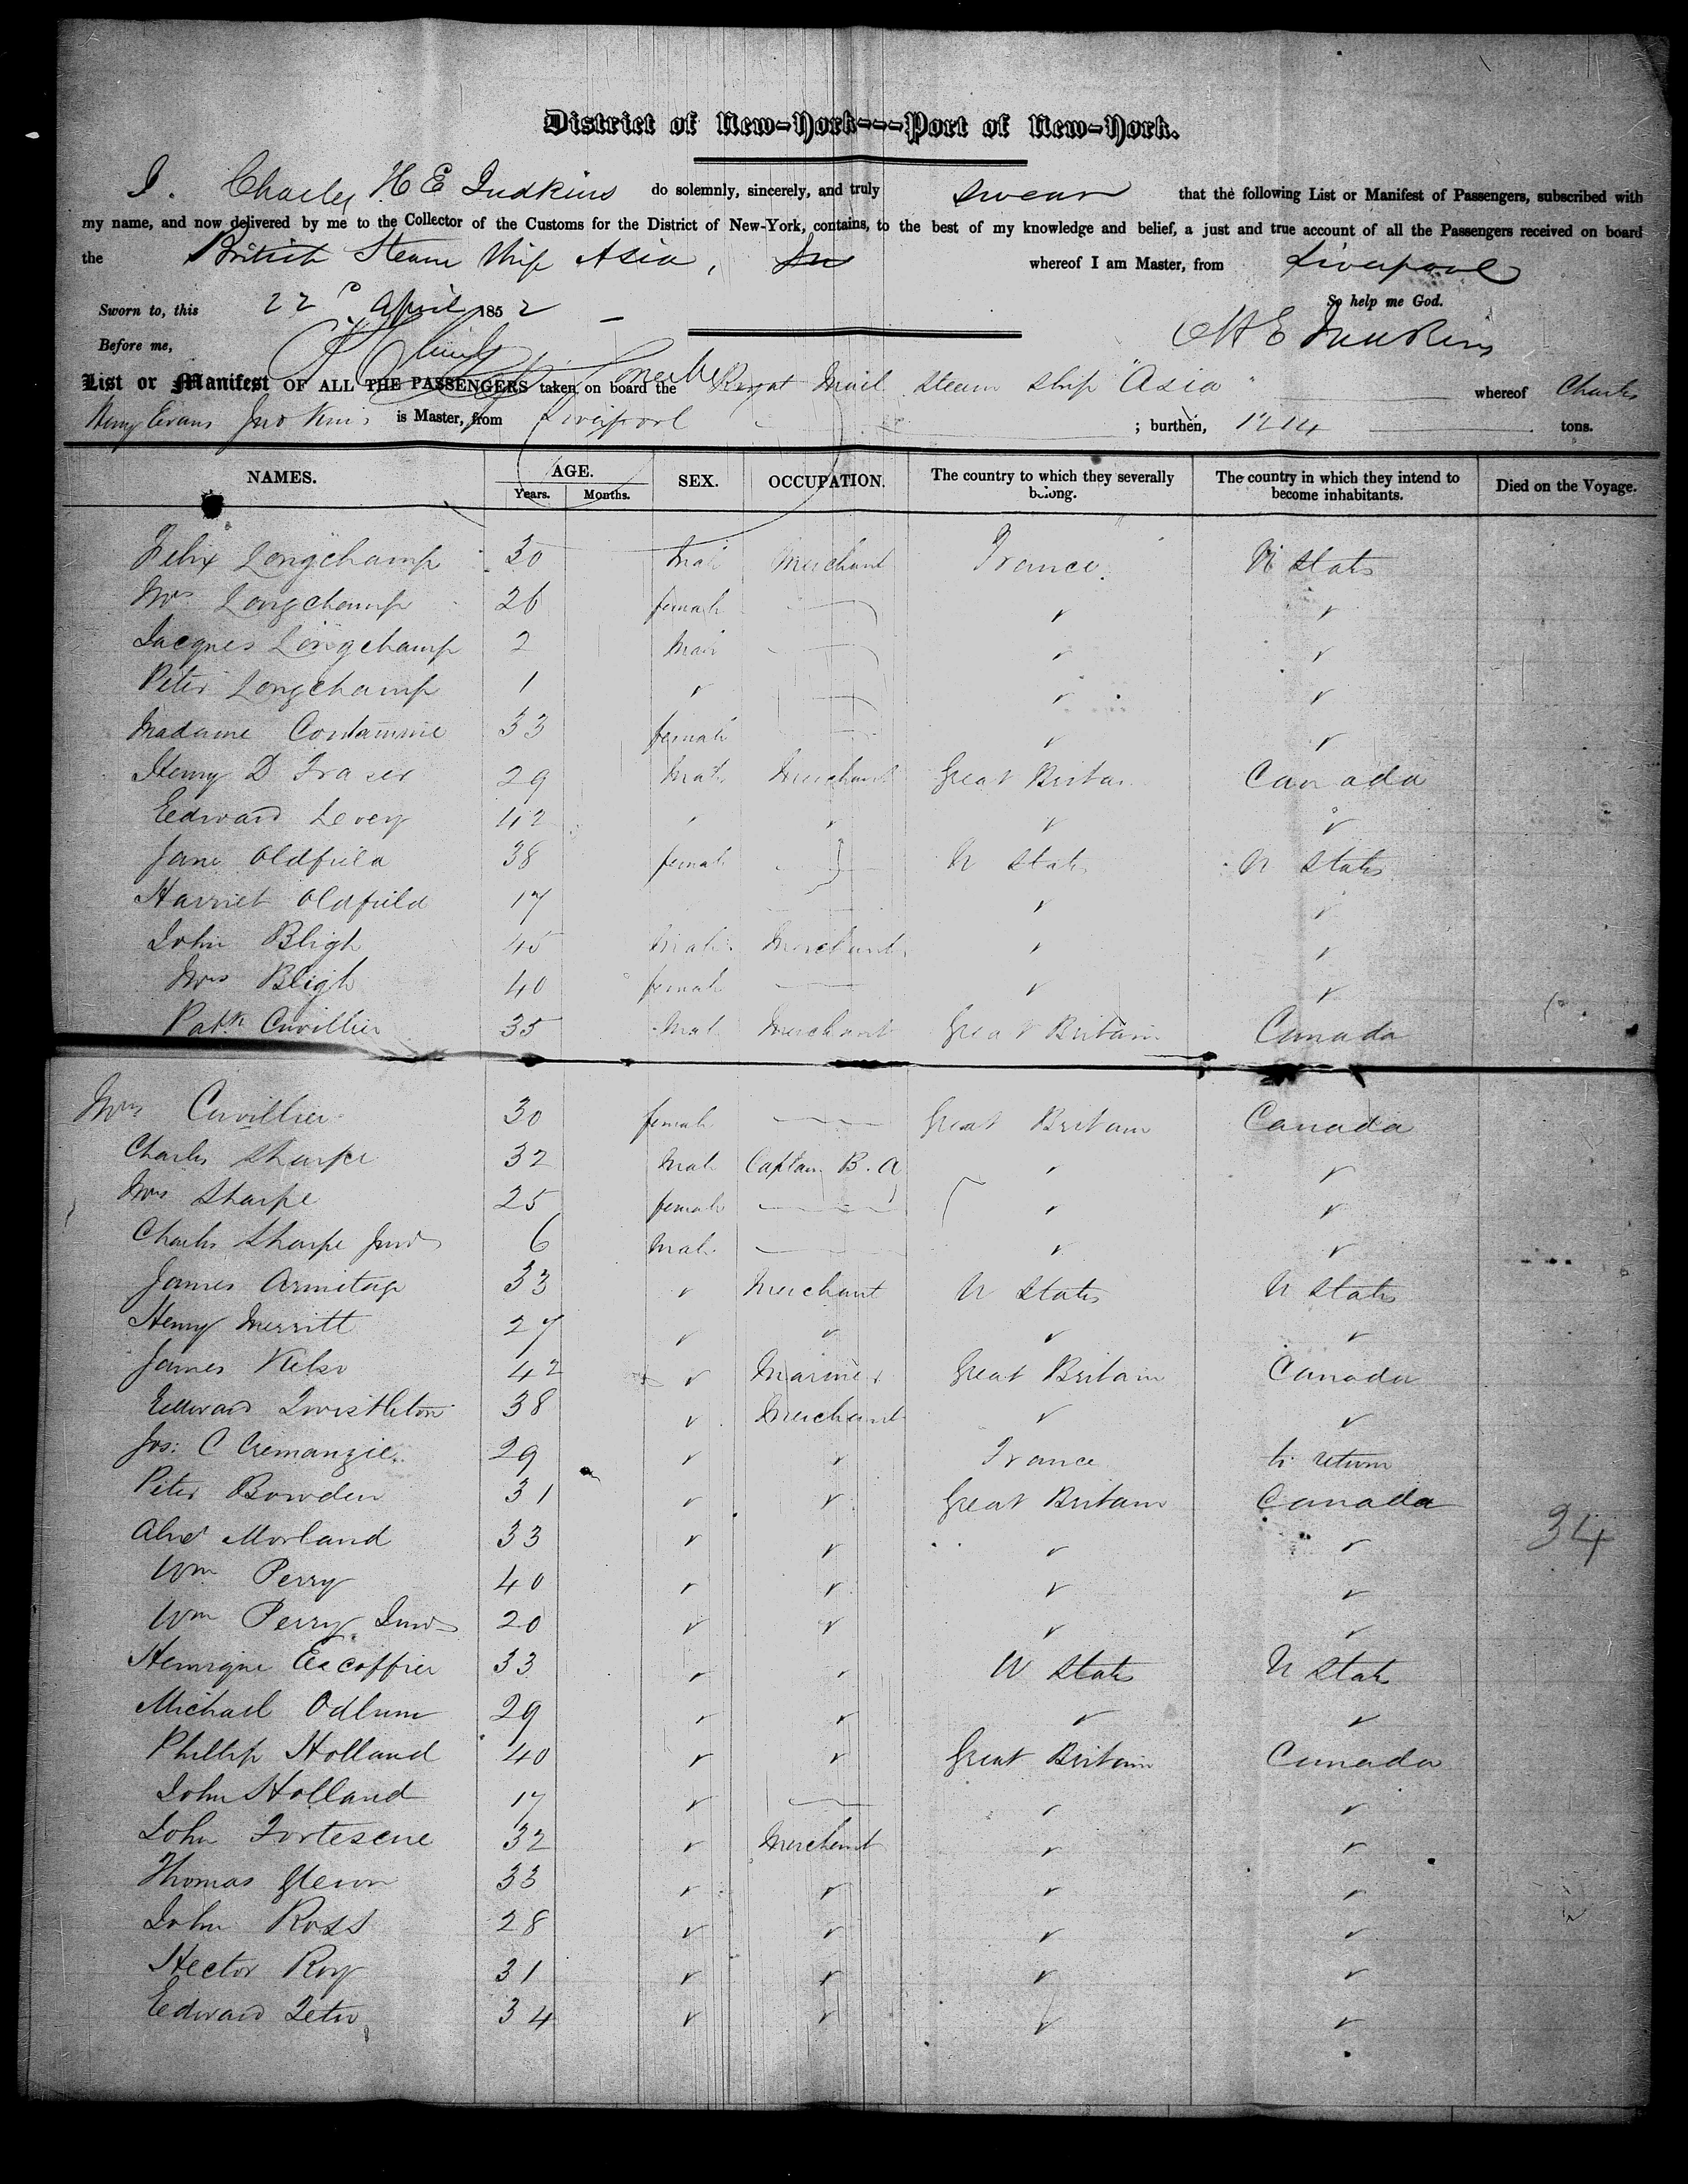 District of New-York---Port of New-York.
I. Charles H. E Judkins do solemnly, sincerely, and truly swear that the following List or Manifest of Passengers, subscribed with
my name, and now delivered by me to the Collector of the Customs for the District of New-York, contains, to the best of my knowledge and belief, a just and true account of all the Passengers received on board
the British Steam Ship Asia, whereof I am Master, from Liverpool
Sworn to, this 22d April 1852 So help me God.
Before me, CHE Judkins
List or Manifest OF ALL THE PASSENGERS taken on board the Royal Mail Steam Ship "Asia" whereof Charles
Henry Evans Judkins is Master, from Liverpool ; burthen, 1214 tons.
NAMES. AGE. SEX. OCCUPATION. The country to which they severally belong. The country in which they intend to become inhabitants. Died on the Voyage.
Years. Months.
Felix Longchamp 30 Male Merchant France U States
Mrs Longchamp 26 female
Jacques Longchamp 2 Male
Peter Longchamp 1
Madame 33 female
Henry D Fraser 29 Male Merchant Great Britain Canada
Edward Levey 42
Jane Oldfield 38 female U States U States
Harriet Oldfield 17
John Bligh 45 Male Merchant
Mrs Bligh 40 female
Patk Cuvillier 35 Male Merchant Great Britain Canada
Mrs Cuvillier 30 female Great Britain Canada
Charles Sharpe 32 Male Captain B. A
Mrs Sharpe 25 female
Charles Sharpe Junr 6 Male
James Armitage 33 Merchant U States U States
Henry Merritt 27
James Kelso 42 Mariner Great Britain Canada
Edward Twistleton 38 Merchant
Jos: C Cremanzie 29 France to return
Peter Bowden 31 Great Britain Canada
Morland 33 34
Wm Perry 40
Wm Perry Junr 20
Henrique Escoffier 33 U States U States
Michael Odlum 29
Phillip Holland 40 Great Britain Canada
John Holland 17
John Fortescue 32 Merchant
Thomas Glenn 33
John Ross 28
Hector Roy 31
Edward 34